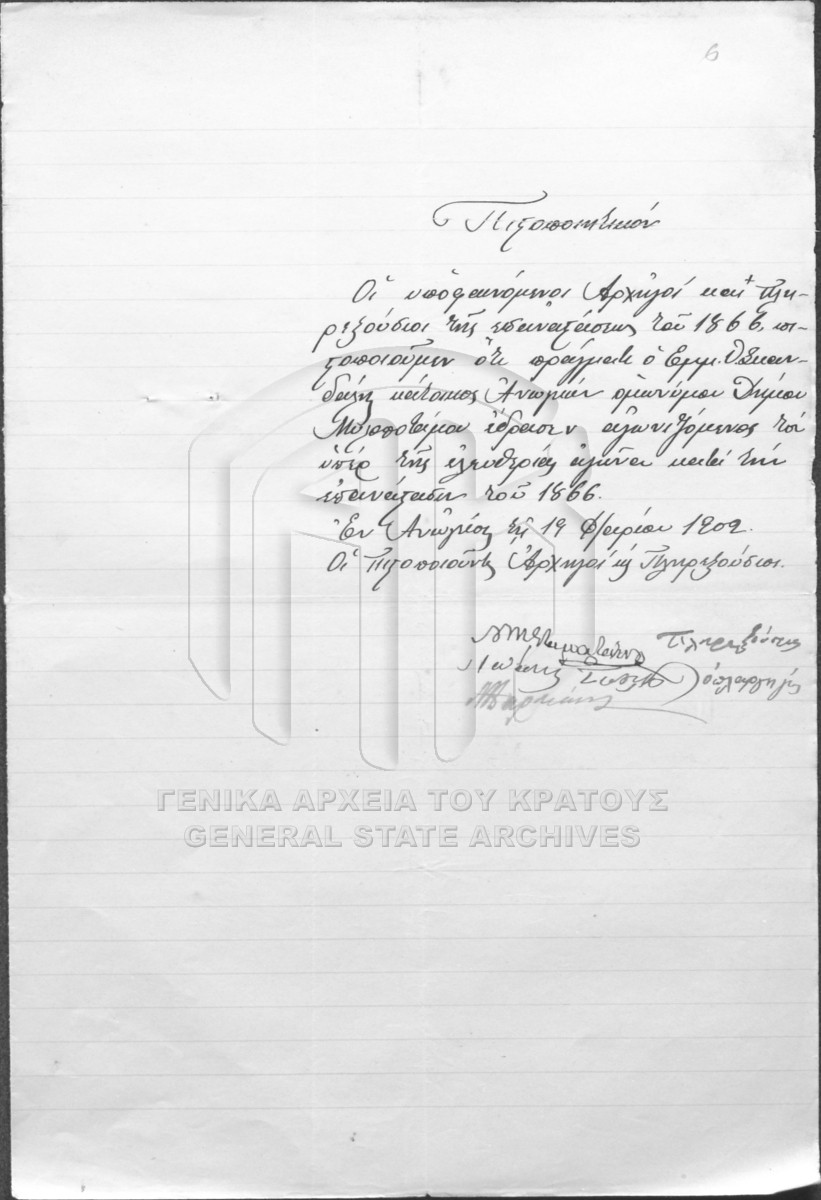 6
Πιστοποιητικόν
Οἱ ὑποφαινόμενοι Ἀρχηγοί καί Πλη-
ρεξούσιοι τῆς ἐπαναστάσεως τοῦ 1866, πι-
στοποιοῦμεν ὅτι πράγματι ὁ Εμμ. Σκαν-
δάλης κάτοικος Ἀνωγείων ὁμωνύμου Δήμου
Μυλοποτάμου ἔδρασεν ἀγωνιζόμενος τόν
ὑπέρ τῆς ἐλευθερίας ἀγῶνα κατά τήν
ἐπανάστασιν τοῦ 1866.
Ἐν Ἀνωγείοις τῇ 19 Φ/αρίου 1909.
Οἱ Πιστοποιοῦντες Ἀρχηγοί κ Πληρεξούσιοι.
Πληρεξούσιος
ὁπλαρχηγός
ΓΕΝΙΚΑ ΑΡΧΕΙΑ ΤΟΥ ΚΡΑΤΟΥΣ
GENERAL STATE ARCHIVES